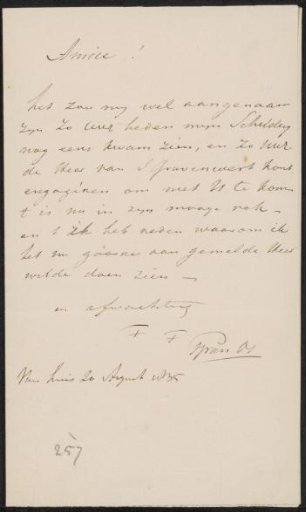 Amice !
het zou mij wel aangenaam
zyn zo heden myn Schildery
nog eens kwam zien, en zo
de Heer van S Gravenwert kont
engageren om met U te kom
t is nu in zyn
en ik heb reden waarom ik
het gaarne aan gemelde Heer
wilde doen zien —
in afwachting
F F
van Os
Van huis 20 August 1835
257